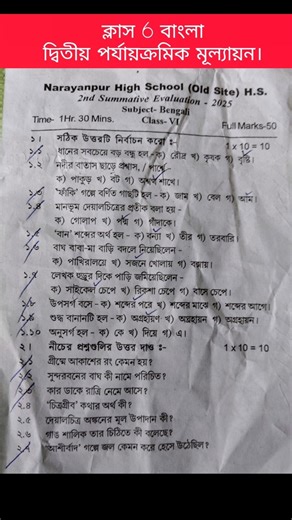 ক্লাস 6 বাংলা
দ্বিতীয় পর্যায়ক্রমিক মূল্যায়ন।
Narayanpur High School (Old Site) H.S.
2nd Summative Evaluation - 2025
Subject- Bengali
Time- 1Hr. 30 Mins. Class- VI Full Marks-50
১.। সঠিক উত্তরটি নির্বাচন করো ঃ- 1 x 10 = 10
১.১ ধানের সবচেয়ে বড় বন্ধু হল - ক) রৌদ্র খ) কৃষক গ) বৃষ্টি।
১.২ নদীর বাতাস ছাড়ে প্রশ্বাস, / পার্শ্বে
ক) পাকুড় খ) বট গ) অশ্বথ শাখে।
১.৩ 'ফাঁকি' গল্পে বর্ণিত গাছটি হল - ক) জাম খ) বেল গ) আম।
১.৪ মানভূম দেয়ালচিত্রের প্রতীক বলা হয় -
ক) গোলাপ খ) পদ্ম গ) গাঁদাকে।
১.৫ 'বান' শব্দের অর্থ হল - ক) বন্যা খ) তীর গ) তরবারি।
১.৬ বাঘ বাবা-মা বাড়ি বদলে নিয়েছিলেন -
ক) পাখিরালয়ে খ) সজনে গোলায় গ) বক্সায়।
১.৭ লেখক ছত্তর দিকে পাড়ি জমিয়েছিলেন -
ক) সাইকেল চেপে খ) রিকশা চেপে গ) বাসে চেপে।
১.৮ উপসর্গ বসে - ক) শব্দের পরে খ) শব্দের মাঝে গ) শব্দের আগে।
১.৯ শুদ্ধ বানানটি হল - ক) অগ্রহায়ণ খ) অগ্রহায়ন গ) অগ্রহায়ন।
১.১০ অনুসর্গ হল - ক) কে খ) দিয়ে গ) এ।
২। নীচের প্রশ্নগুলির উত্তর দাও ঃ- 1 x 10 = 10
২.১ গ্রীষ্মে আকাশের রং কেমন হয়?
২.২ সুন্দরবনের বাঘ কী নামে পরিচিত?
২.৩ কার ডাকে রাত্রি নেমে আসে?
২.৪ 'চিত্রগ্রীব' কথার অর্থ কী?
২.৫ দেয়ালচিত্র অঙ্কনের মূল উপাদান কী?
২.৬ গাঙ শালিক তার চিঠিতে কী বলেছে?
২.৭ 'আশীর্বাদ' গল্পে জল কেমন করে হেসে উঠেছিল?